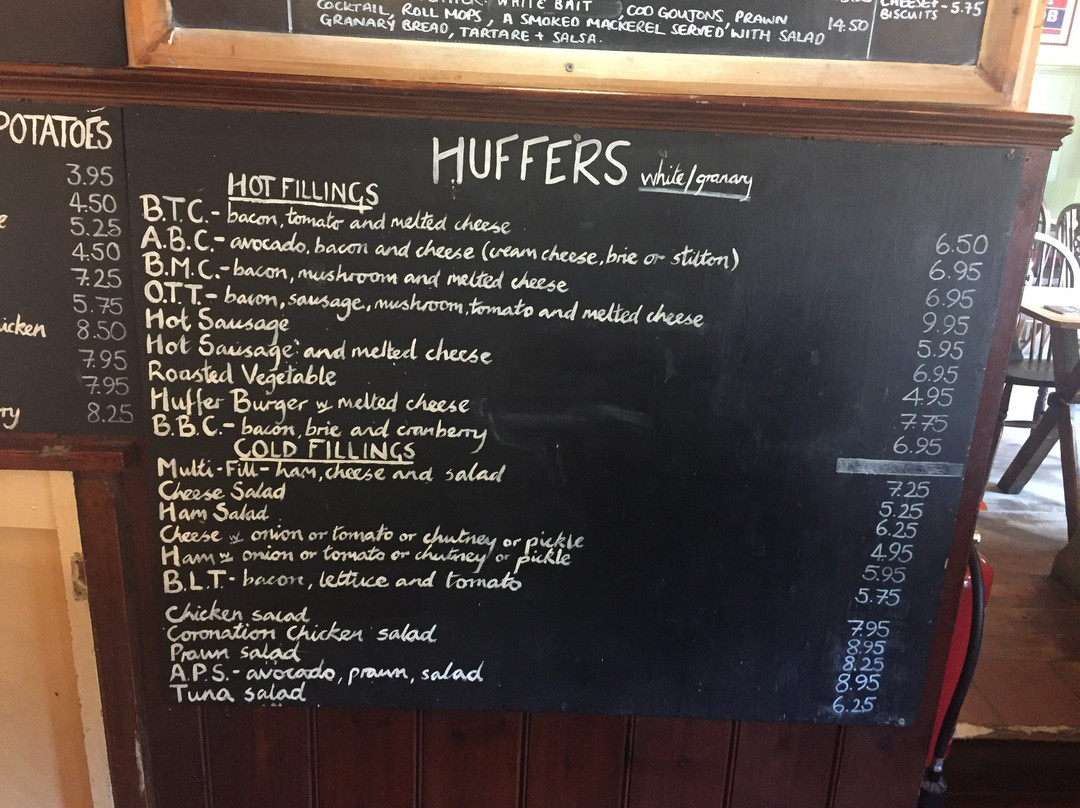 WHITE BAIT COD GOUJONS, PRAWN
COCKTAIL, ROLL MOPS, A SMOKED MACKEREL SERVED WITH SALAD 14.50
GRANARY BREAD, TARTARE + SALSA.
CHEESE+ 5.75
BISCUITS
POTATOES
3.95
4.50
5.25
4.50
7.25
5.75
8.50
7.95
7.95
8.25
HUFFERS white/granary
HOT FILLINGS
B.T.C.- bacon, tomato and melted cheese 6.50
A.B.C.- avocado, bacon and cheese (cream cheese, brie or stilton) 6.95
B.M.C.- bacon, mushroom and melted cheese 6.95
O.T.T.- bacon, sausage, mushroom, tomato and melted cheese 9.95
Hot Sausage 5.95
Hot Sausage and melted cheese 6.95
Roasted Vegetable 4.95
Huffer Burger w melted cheese 7.75
B.B.C.- bacon, brie and cranberry 6.95
COLD FILLINGS
Multi-Fill- ham, cheese and salad 7.25
Cheese Salad 5.25
Ham Salad 6.25
Cheese w onion or tomato or chutney or pickle 4.95
Ham w onion or tomato or chutney or pickle 5.95
B.L.T- bacon, lettuce and tomato 5.75
Chicken salad 7.95
Coronation Chicken salad 8.95
Prawn salad 8.25
A.P.S.- avocado, prawn, salad 8.95
Tuna salad 6.25